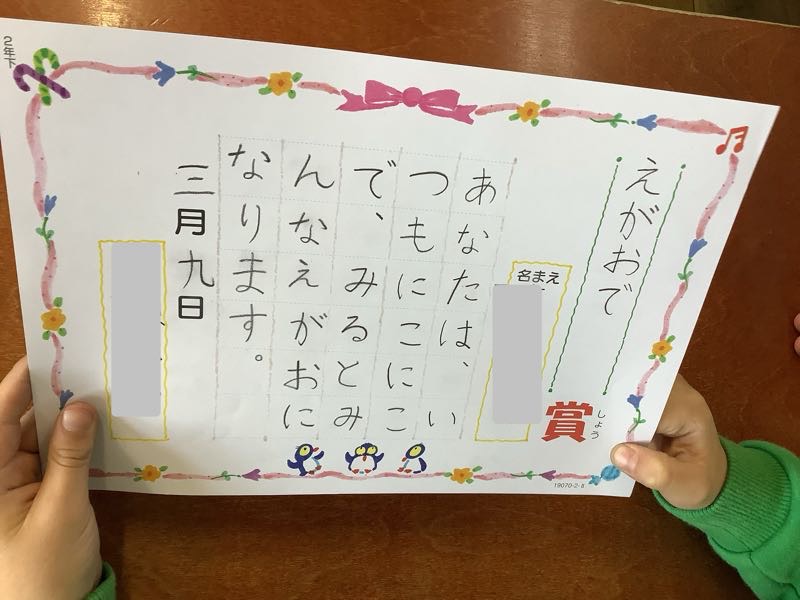 2年下
えがおで
賞
しょう
名まえ
あなたは、い
つもにこにこ
で、みるとみ
んなえがおに
なります。
三月九日
19070-2-8